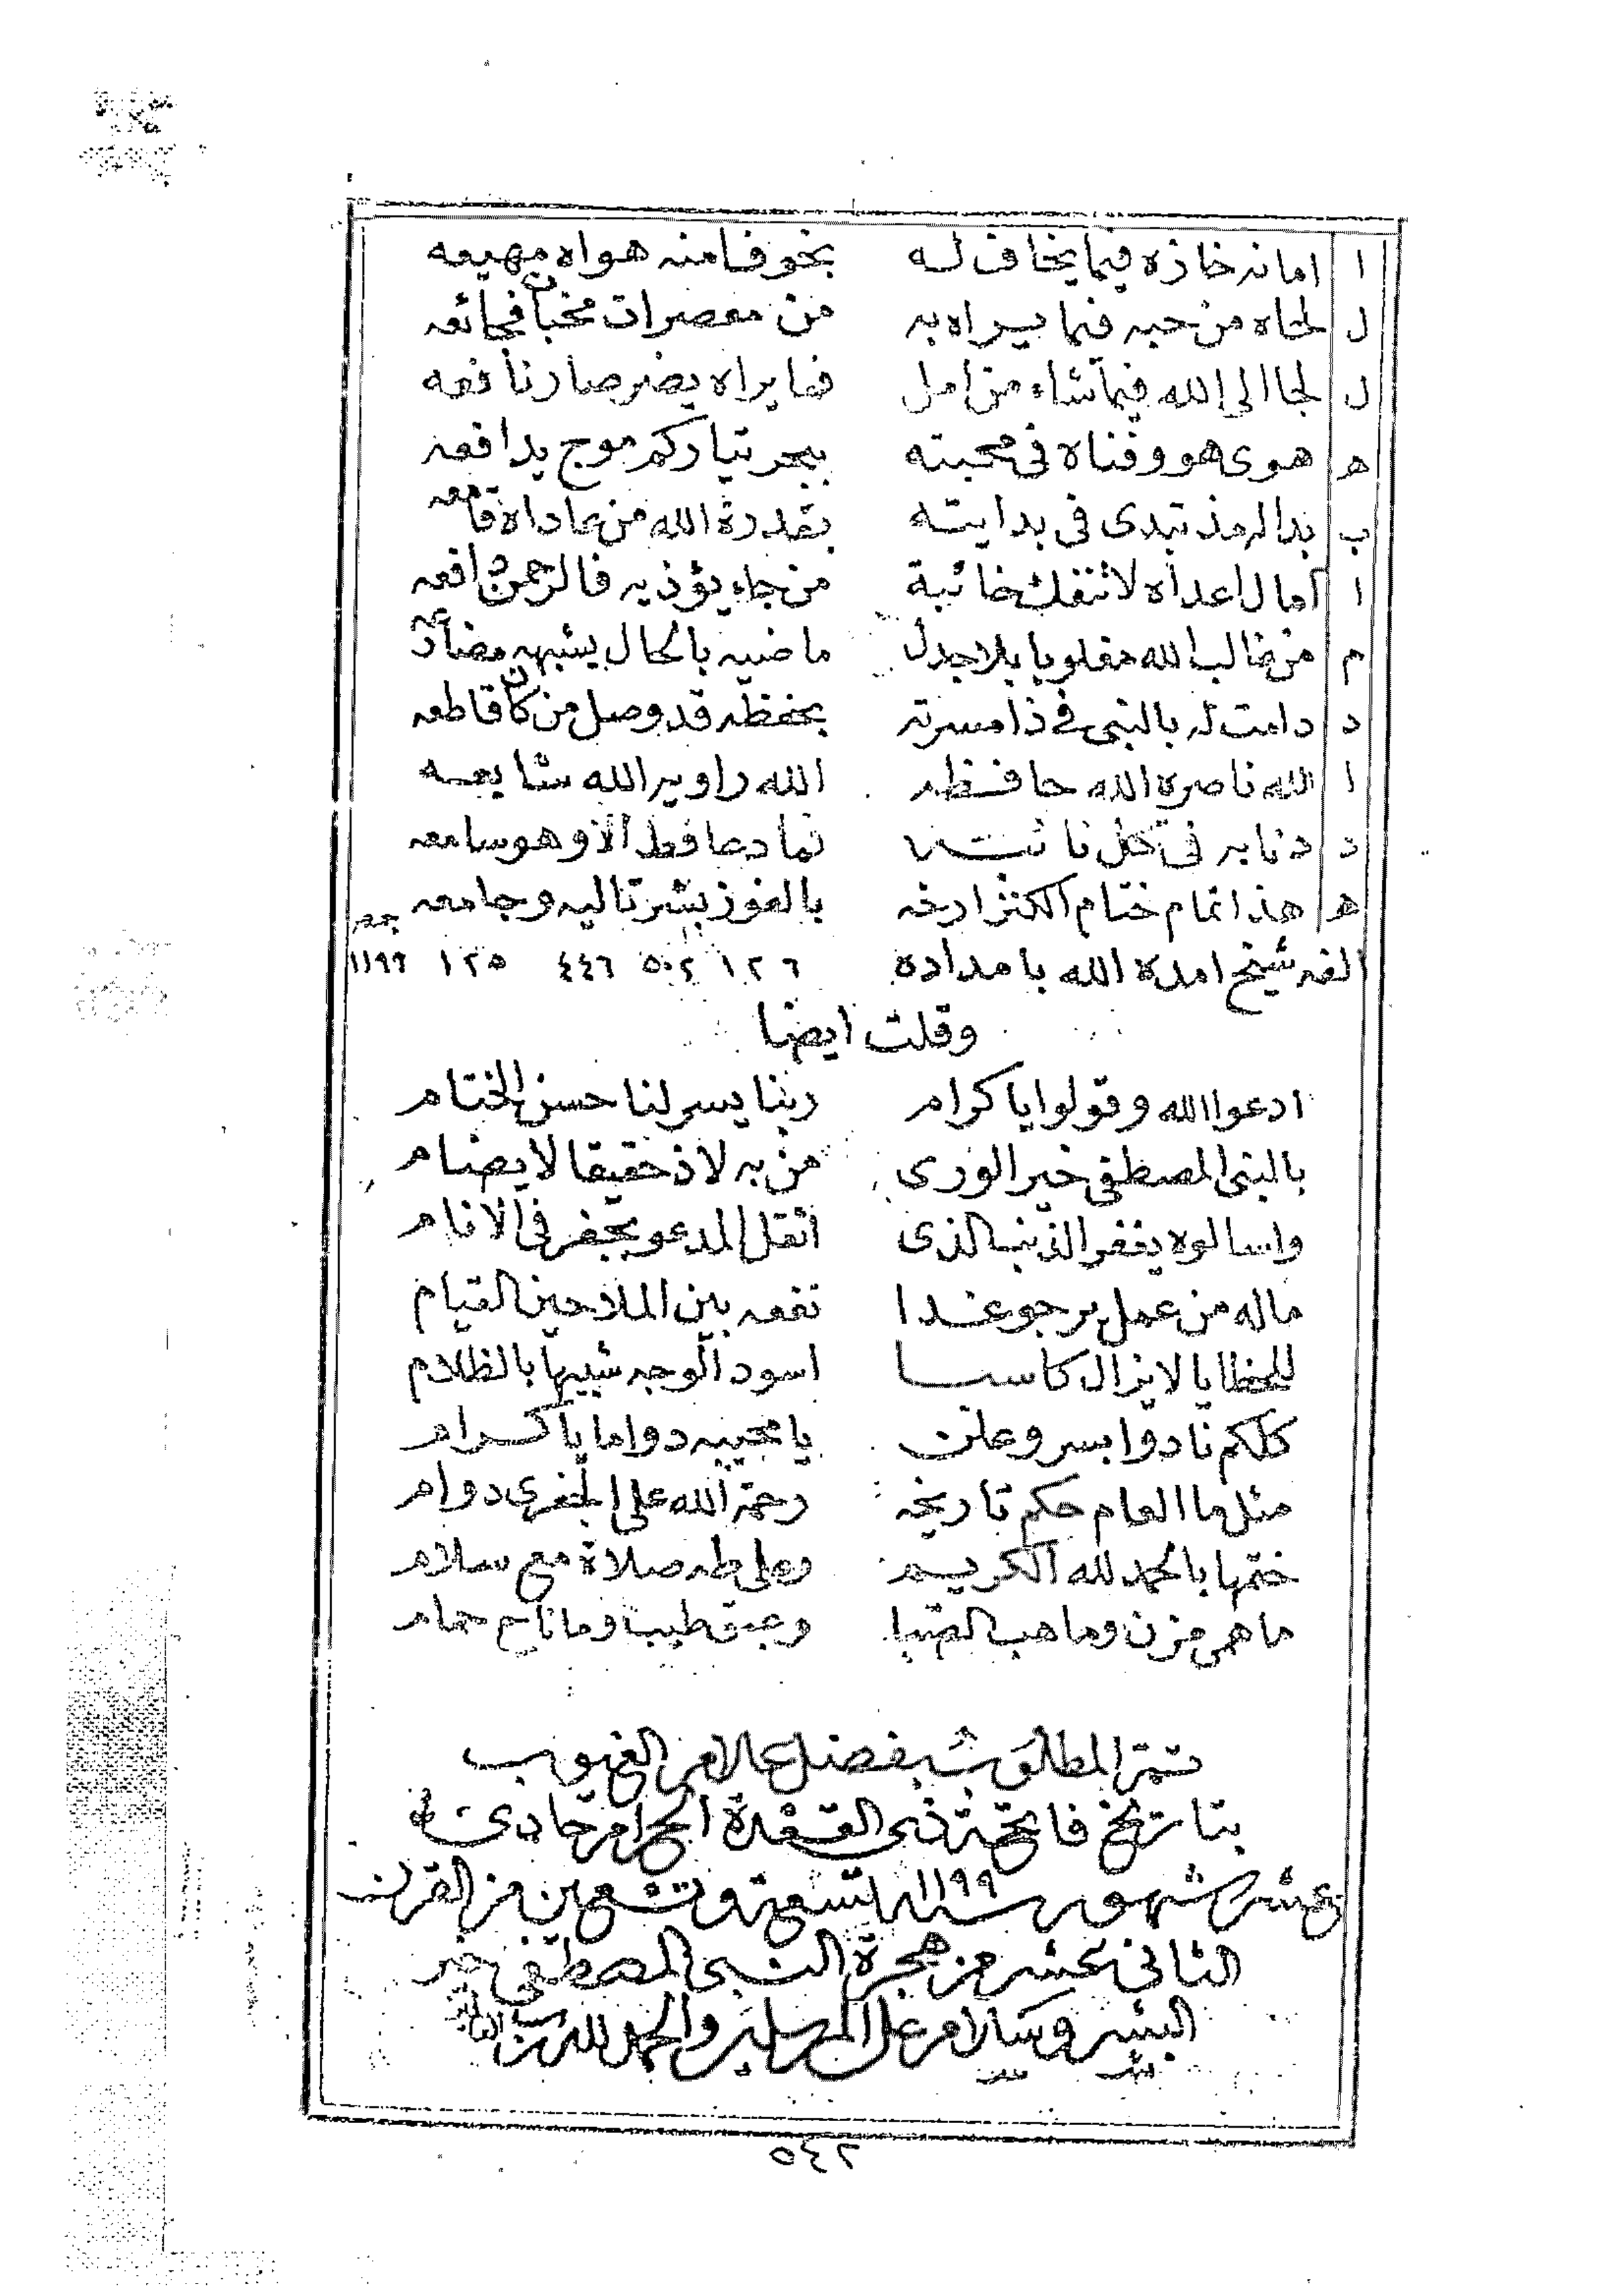 ا امانه خاذه فيما يخاف له بخوف امنه هواه مهيعه
ل لحاه من حبه فيما يراه به من معصرات
ل لجا الى الله فيما شاء من امل فما يراه يضر صار نافعه
ه هوى هو وفناه فى محبته ببحر تيار كم موج يدافعه
ب بدا له مذ تبدى فى بدايته بقدرة الله من عاداه قامعه
ا امال اعداه لا تنفك خائبة من جاء يؤذيه فالرحمن دافعه
م من غالب الله مغلوبا بلا جدل ماضيه بالحال يشبهه مضارعه
د دامت له بالنبى فى ذا مسرته بحفظه قد وصل من كان قاطعه
ا الله ناصره الله حافظه الله راويه الله شايعه
د دنا به فى كل نائبة فما دعا قط الا وهو سامعه
ه هذا تمام ختام الكنز ارخه بالفوز بشر تاليه وجامعه جعفر
الفه شيخ امده الله بامداده ١٢٦ ٥٠٢ ٤٤٦ ١٢٥ ١١٩٩
وقلت ايضا
ادعوا الله وقولوا يا كرام ربنا يسر لنا حسن الختام
بالنبى المصطفى خير الورى من به لاذ حقيقا لا يضام
واسالوه يغفر الذنب الذى اثقل المدعو بجعفر فى الانام
ماله من عمل يرجو غدا نفعه بين الملا حين القيام
للخطايا لا يزال كاسبا اسود الوجه شبيها بالظلام
كلكم نادوا بسر وعلن يا مجيبه دواما يا كرام
مثل ما العام حكم تاريخه رحمة الله على الجفرى دوام
ختمها بالحمد لله الكريم وعلى طه صلاة مع سلام
ما همى مزن وما هب الصبا وعبق طيب وما ناح حمام
تمت المطلوب بفضل علام الغيوب
بتاريخ فاتحة ذى القعدة الحرام حادى
عشر شهور سنة ١١٩٩ تسعة وتسعين من القرن
الثانى عشر من هجرة النبى المصطفى خير
البشر وسلام على المرسلين والحمد لله رب العالمين
٥٤٢